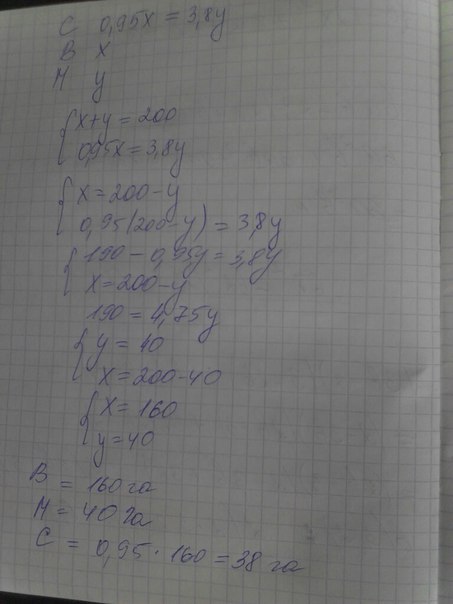 С 0,95x = 3,8y
В x
М y
x+y = 200
0,95x = 3,8y
x = 200-y
0,95(200-y) = 3,8y
190 - 0,95y = 3,8y
x = 200-y
190 = 4,75y
y = 40
x = 200-40
x = 160
y = 40
В = 160 га
М = 40 га
С = 0,95 · 160 = 38 га